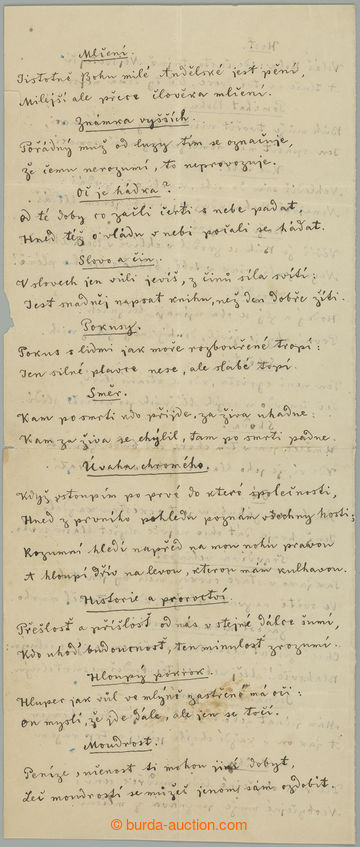 Mlčení.
Jistotně Bohu milé Andělské jest pění,
Milejší ale přece člověka mlčení.
Známka vyšších
Pořádný muž od luzy tím se označuje,
že čemu nerozumí, to neprovozuje.
Oč je hádka?
Od té doby co začli čerti s nebe padat,
Hned též o vládu v nebi počali se hádat.
Slovo a čin.
V slovech jen vůli jevíš, z činů síla svítí:
Jest snadněj napsat knihu, než den dobře žíti.
Pokusy.
Pokus s lidmi jak moře rozbouřené tropí:
Jen silné plavce nese, ale slabé topí.
Směr.
Kam po smrti kdo přijde, za živa uhadne:
Kam za živa se chýlil, tam po smrti padne.
Úvaha chromého.
Když vstoupím po prvé do které společnosti,
Hned z prvního pohledu poznám všechny hosti;
Rozumní hledí napřed na mou nohu pravou
A hloupí dřív na levou, kterou mám kulhavou.
Historie a proroctví.
Přešlost a příšlost od nás v stejné dálce šumí,
Kdo uhodl budoucnost, ten minulost zrozumí.
Hloupý pokrok.
Hlupec jak vůl ve mlýně zastřené má oči:
On myslí, že jde dále, ale jen se točí.
Moudrost.
Peníze, učenost ti mohou jiní dobyt,
Leč moudrostí se můžeš jenom sám ozdobit.
© burda-auction.com